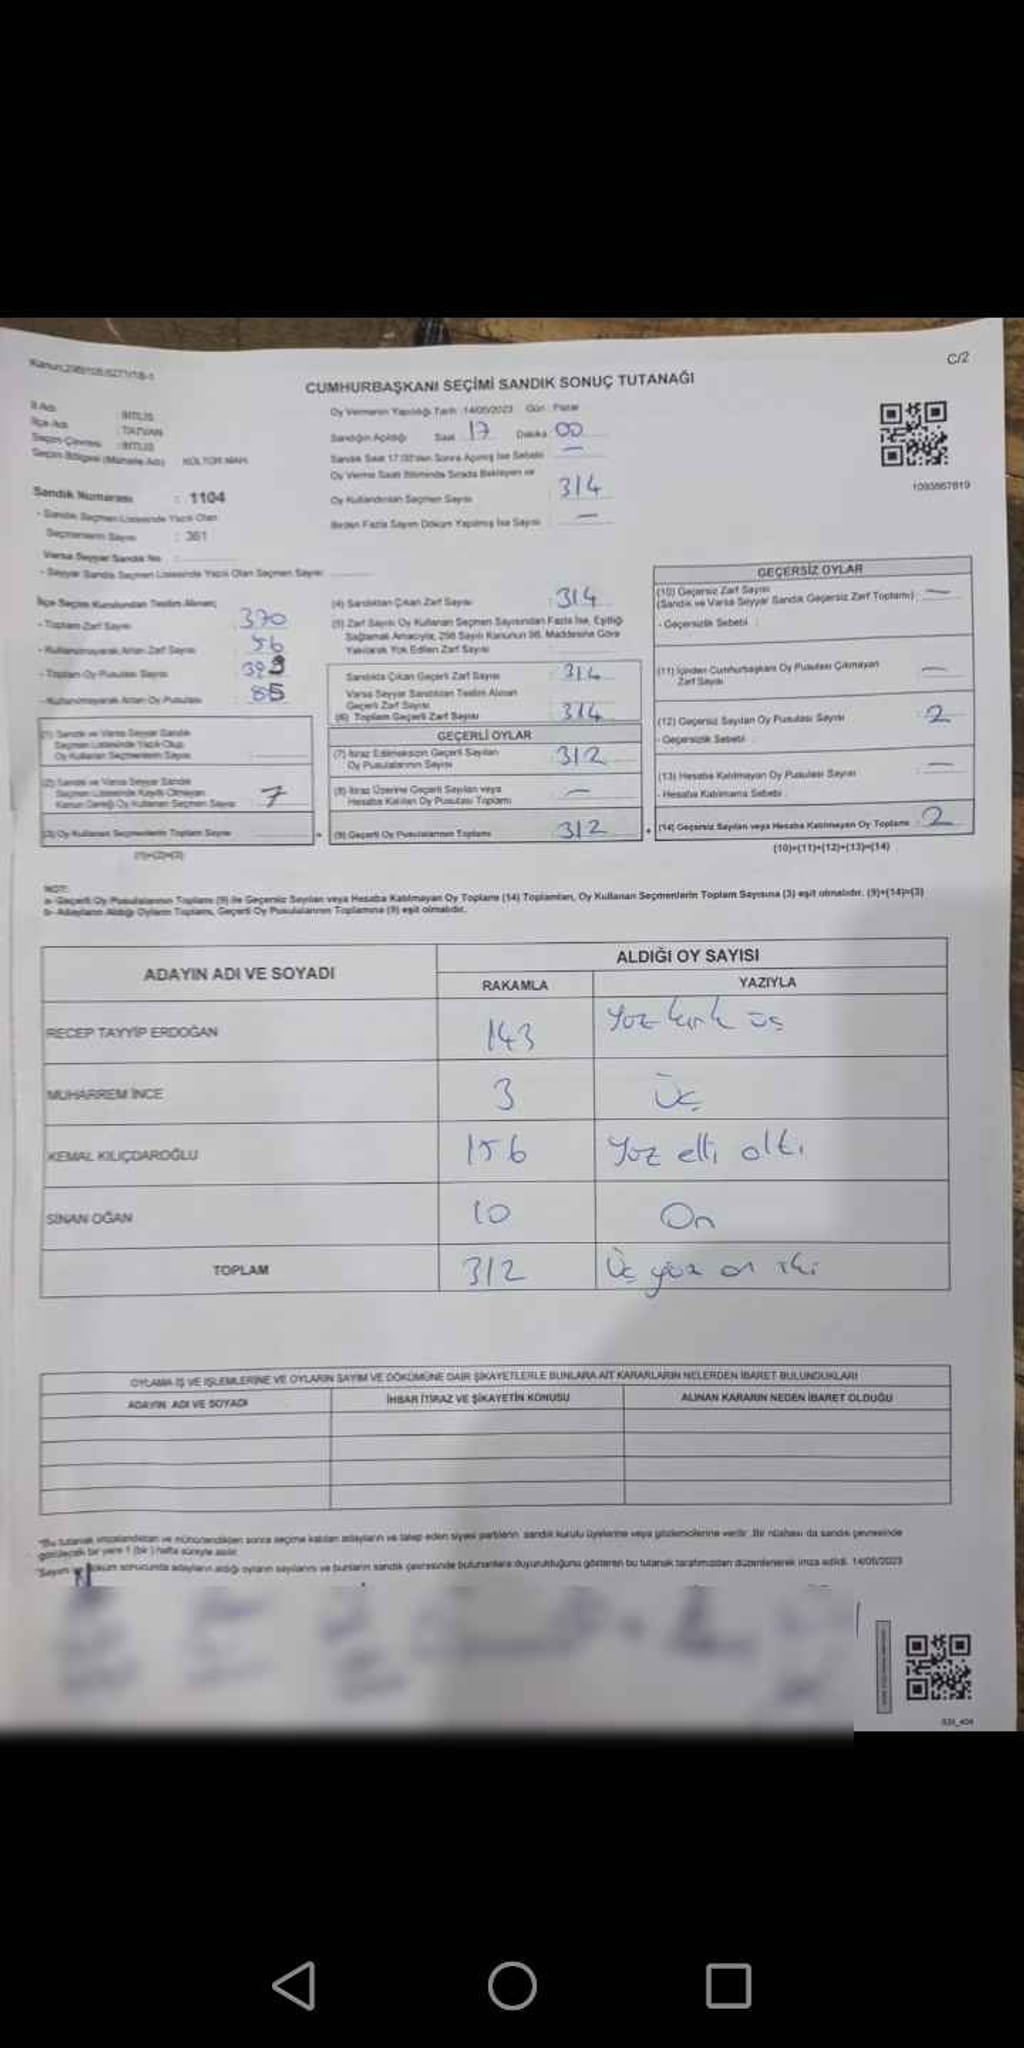 C/2
CUMHURBAŞKANI SEÇİMİ SANDIK SONUÇ TUTANAĞI
İl Adı : BİTLİS
İlçe Adı : TATVAN
Seçim Çevresi : BİTLİS
Seçim Bölgesi (Mahalle Adı) KÜLTÜR MAH.
Oy Vermenin Yapıldığı Tarih :14/05/2023 Gün : Pazar
Sandığın Açıldığı Saat 17 Dakika 00
Sandık Saat 17:00'den Sonra Açılmış İse Sebebi —
Oy Verme Saati Bitiminde Sırada Bekleyen ve
Oy Kullandırılan Seçmen Sayısı : 314
Birden Fazla Sayım Döküm Yapılmış İse Sayısı : —
1093867819
Sandık Numarası : 1104
- Sandık Seçmen Listesinde Yazılı Olan
Seçmenlerin Sayısı : 361
Varsa Seyyar Sandık No :
- Seyyar Sandık Seçmen Listesinde Yazılı Olan Seçmen Sayısı
İlçe Seçim Kurulundan Teslim Alınan;
- Toplam Zarf Sayısı 370
- Kullanılmayarak Artan Zarf Sayısı 56
- Toplam Oy Pusulası Sayısı
- Kullanılmayarak Artan Oy Pusulası
(1) Sandık ve Varsa Seyyar Sandık
Seçmen Listesinde Yazılı Olup
Oy Kullanan Seçmenlerin Sayısı
(2) Sandık ve Varsa Seyyar Sandık
Seçmen Listesinde Kayıtlı Olmayan
Kanun Gereği Oy Kullanan Seçmen Sayısı 7
(3) Oy Kullanan Seçmenlerin Toplam Sayısı
(1)+(2)=(3)
(4) Sandıktan Çıkan Zarf Sayısı : 314
(5) Zarf Sayısı Oy Kullanan Seçmen Sayısından Fazla İse, Eşitliği
Sağlamak Amacıyla, 298 Sayılı Kanunun 98. Maddesine Göre
Yakılarak Yok Edilen Zarf Sayısı
Sandıkta Çıkan Geçerli Zarf Sayısı : 314
Varsa Seyyar Sandıktan Teslim Alınan
Geçerli Zarf Sayısı
(6) Toplam Geçerli Zarf Sayısı : 314
GEÇERLİ OYLAR
(7) İtiraz Edilmeksizin Geçerli Sayılan
Oy Pusulalarının Sayısı : 312
(8) İtiraz Üzerine Geçerli Sayılan veya
Hesaba Katılan Oy Pusulası Toplamı : —
(9) Geçerli Oy Pusulalarının Toplamı : 312
GEÇERSİZ OYLAR
(10) Geçersiz Zarf Sayısı
(Sandık ve Varsa Seyyar Sandık Geçersiz Zarf Toplamı) : —
- Geçersizlik Sebebi :
(11) İçinden Cumhurbaşkanı Oy Pusulası Çıkmayan
Zarf Sayısı : —
(12) Geçersiz Sayılan Oy Pusulası Sayısı : 2
- Geçersizlik Sebebi :
(13) Hesaba Katılmayan Oy Pusulası Sayısı : —
- Hesaba Katılmama Sebebi :
(14) Geçersiz Sayılan veya Hesaba Katılmayan Oy Toplamı : 2
(10)+(11)+(12)+(13)=(14)
NOT:
a- Geçerli Oy Pusulalarının Toplamı (9) ile Geçersiz Sayılan veya Hesaba Katılmayan Oy Toplamı (14) Toplamları, Oy Kullanan Seçmenlerin Toplam Sayısına (3) eşit olmalıdır. (9)+(14)=(3)
b- Adayların Aldığı Oyların Toplamı, Geçerli Oy Pusulalarının Toplamına (9) eşit olmalıdır.
ADAYIN ADI VE SOYADI ALDIĞI OY SAYISI
RAKAMLA YAZIYLA
RECEP TAYYİP ERDOĞAN 143 Yüz kırk üç
MUHARREM İNCE 3 Üç
KEMAL KILIÇDAROĞLU 156 Yüz elli altı
SİNAN OĞAN 10 On
TOPLAM 312 Üç yüz on iki
OYLAMA İŞ VE İŞLEMLERİNE VE OYLARIN SAYIM VE DÖKÜMÜNE DAİR ŞİKAYETLERLE BUNLARA AİT KARARLARIN NELERDEN İBARET BULUNDUKLARI
ADAYIN ADI VE SOYADI İHBAR İTİRAZ VE ŞİKAYETİN KONUSU ALINAN KARARIN NEDEN İBARET OLDUĞU
*Bu tutanak imzalandıktan ve mühürlendikten sonra seçime katılan adayların ve talep eden siyasi partilerin sandık kurulu üyelerine veya gözlemcilerine verilir. Bir nüshası da sandık çevresinde
görülecek bir yere 1 (bir) hafta süreyle asılır.
*Sayım ve döküm sonucunda adayların aldığı oyların sayılarını ve bunların sandık çevresinde bulunanlara duyurulduğunu gösteren bu tutanak tarafımızdan düzenlenerek imza edildi. 14/05/2023